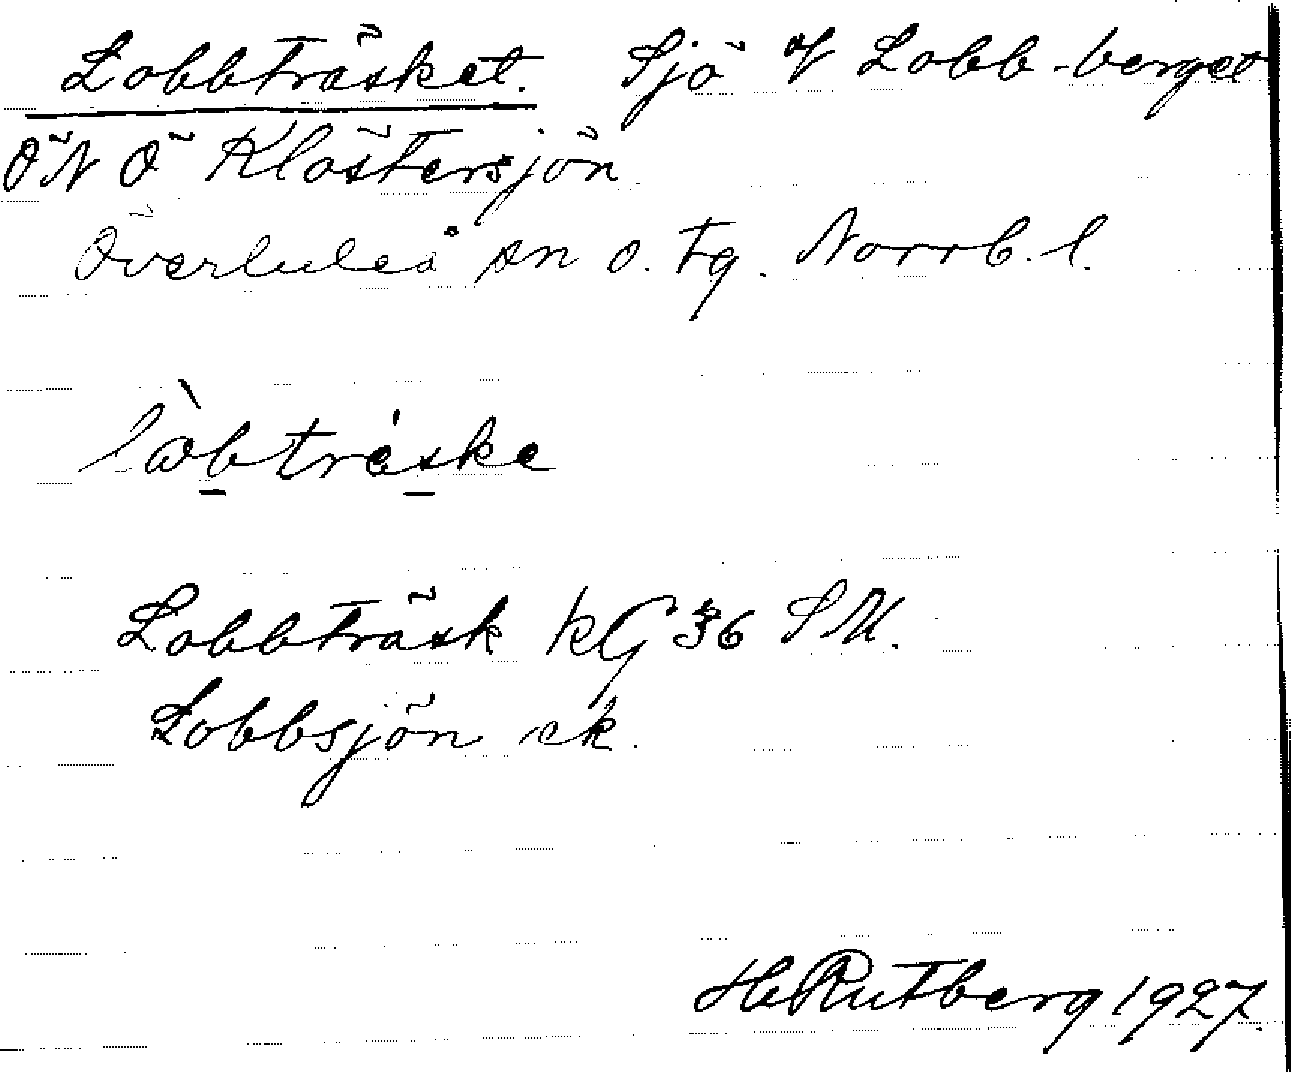 Lobbträsket. Sjö V Lobb-berget
ÖNÖ Klöstersjön
Överluleå sn o. tg. Norrb. l.
làbtráske
Lobbträsk kG 36 SM.
Lobbsjön ek.
H Rutberg 1927.